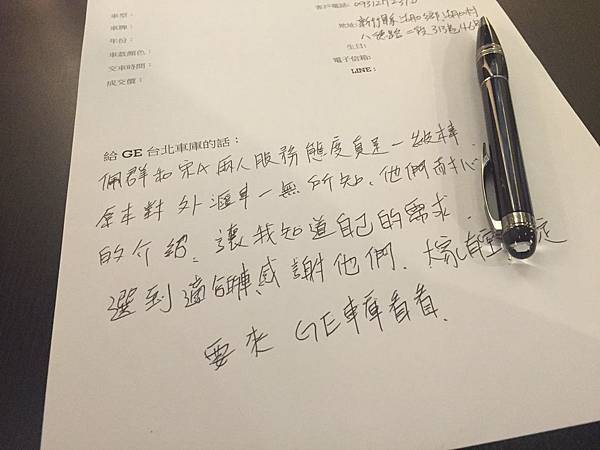 車型：
客戶電話：
車牌：
地址: 新竹縣湖口鄉湖口村
年份：
八德路二段
車款顏色：
生日:
交車時間：
電子信箱:
成交價：
LINE：
給 GE 台北車庫的話：
佩群和宋A兩人服務態度真是一級棒.
本對外匯車一無所知, 他們耐心
的介紹, 讓我知道自己的需求.
選到適 感謝他們. 大家有空 定
要來 GE車庫看看.